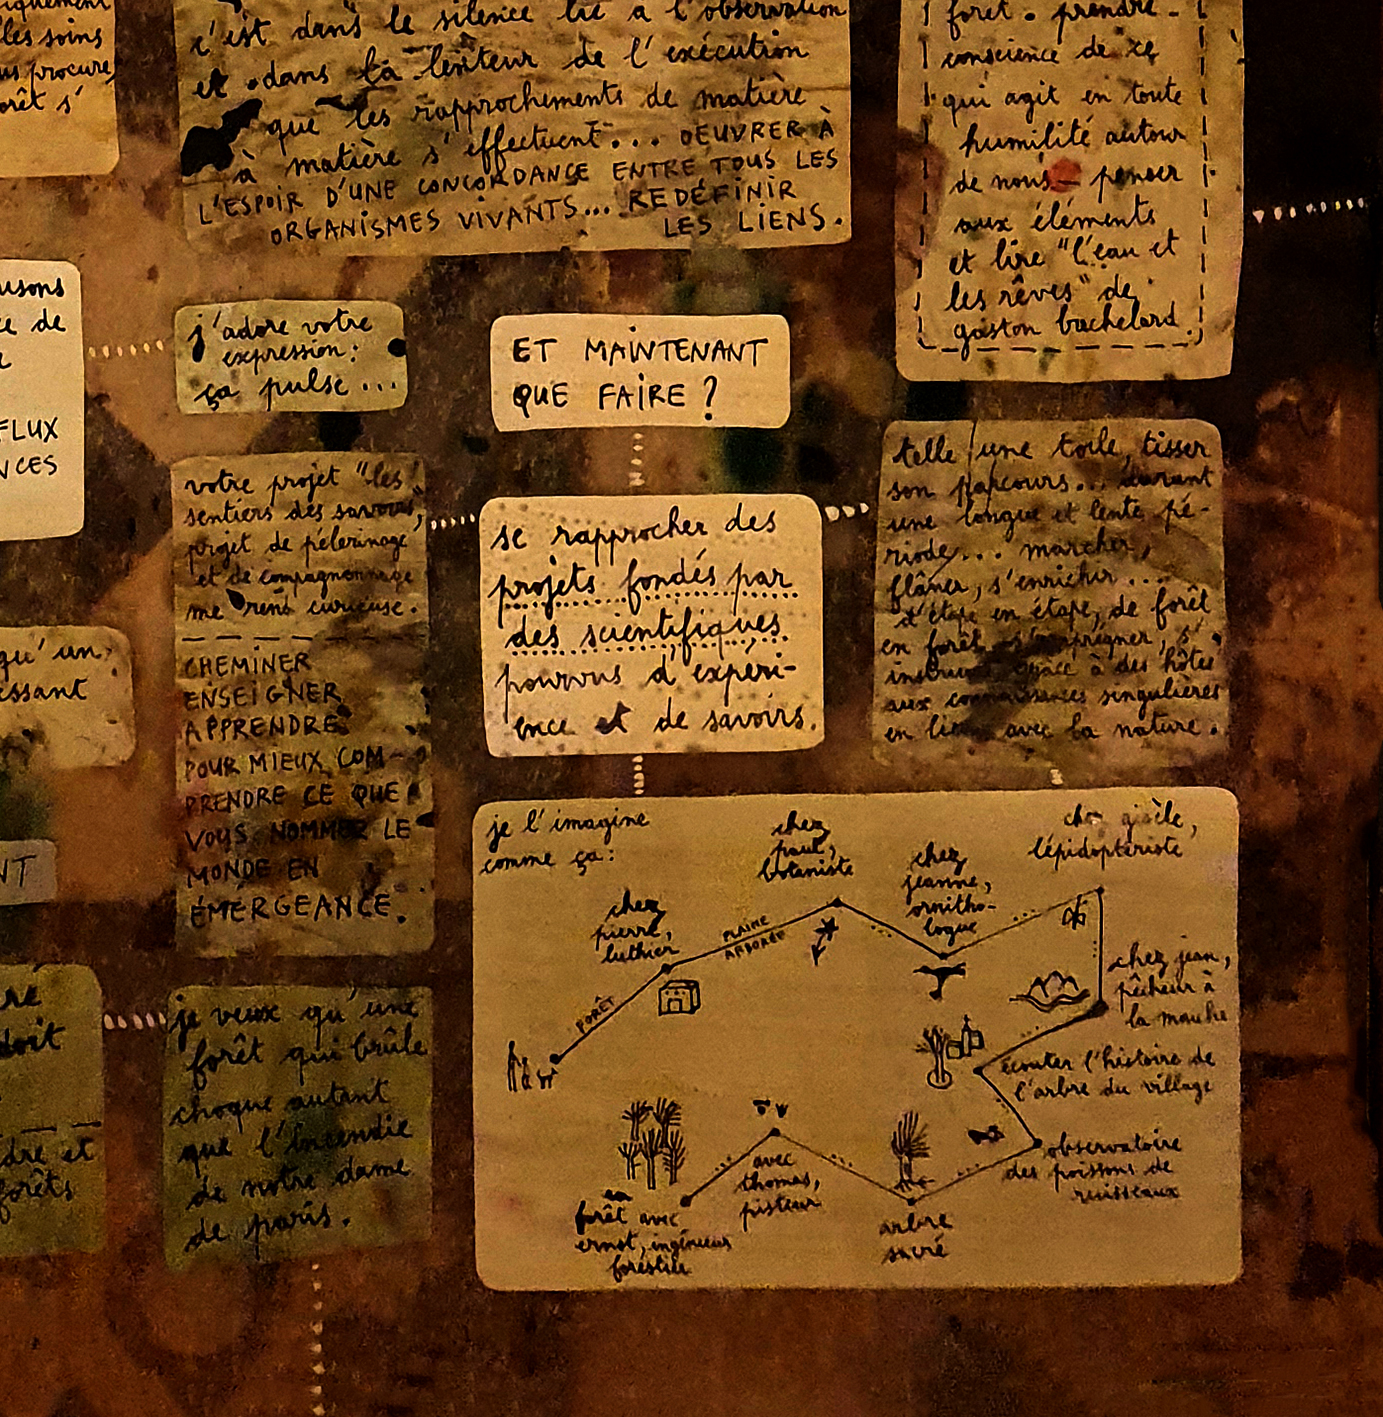 iquement
les soins
us procure,
orêt s'
c'est dans le silence lié à l'observation
et dans la lenteur de l'exécution
que les rapprochements de matière
à matière s'effectuent... OEUVRER À
L'ESPOIR D'UNE CONCORDANCE ENTRE TOUS LES
ORGANISMES VIVANTS... REDÉFINIR
LES LIENS.
forêt. prendre
conscience de ce
qui agit en toute
humilité autour
de nous penser
aux éléments
et lire "l'eau et
les rêves" de
gaston bachelard.
usons
ce de
FLUX
NCES
j'adore votre
expression:
ça pulse...
ET MAINTENANT
QUE FAIRE ?
votre projet "les
sentiers des savoirs",
projet de pèlerinage
et de compagnonnage
me rend curieuse.
CHEMINER
ENSEIGNER
APPRENDRE
POUR MIEUX COM-
PRENDRE CE QUE
VOUS NOMMEZ LE
MONDE EN
ÉMERGEANCE.
se rapprocher des
projets fondés par
des scientifiques
pourvus d'expéri-
ence et de savoirs.
telle une toile, tisser
son parcours... durant
une longue et lente pé-
riode... marcher,
flâner, s'enrichir...
d'étape en étape, de forêt
en forêt s'imprégner, s'
instruire grâce à des hôtes
aux connaissances singulières
en lien avec la nature.
qu'un
essant
NT
doit
dre et
forêts
je veux qu'une
forêt qui brûle
choque autant
que l'incendie
de notre dame
de paris.
je l'imagine
comme ça:
chez
pierre,
luthier
FORÊT
PLAINE
ARBORÉE
chez
paul,
botaniste
chez
jeanne,
ornitho-
logue
chez gisèle,
lépidoptériste
chez jean,
pêcheur à
la mouche
écouter l'histoire de
l'arbre du village
observatoire
des poissons de
ruisseaux
arbre
sacré
avec
thomas,
pisteur
en
forêt avec
ernst, ingénieur
forestier